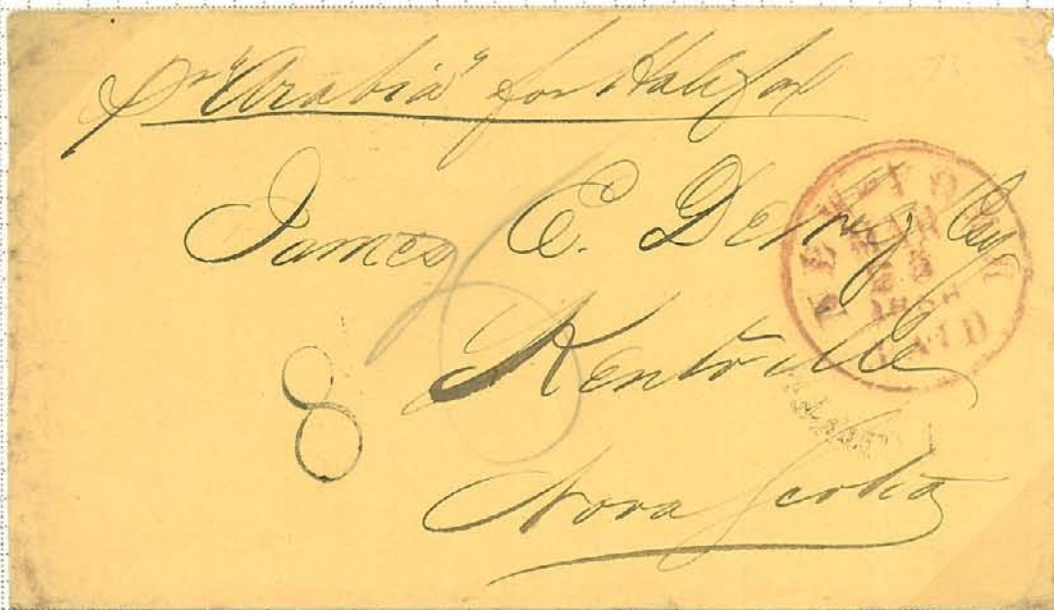 pr "Arabia" for Halifax
James E. Denny Esq
Kentville
Nova Scotia
8
NEW-YORK
MAR
PAID